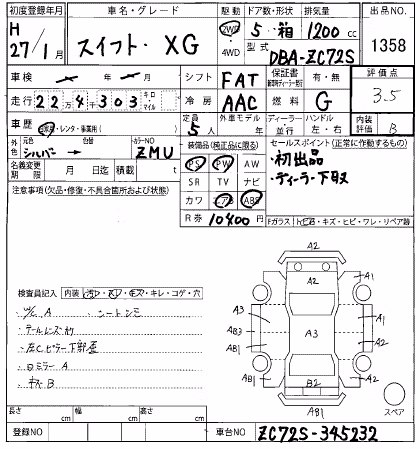 初度登録年月 車名・グレード 駆動 ドア数・形状 排気量 出品NO.
H 27/1月 スイフト・XG 2WD 4WD 5 箱 1200 cc 1358
型式 DBA-ZC72S
車検 シフト FAT 保証書 新車時ディーラー発行 有・無 評価点
走行 22千303 キロ マイル 冷房 AAC 燃料 G 3.5
車歴 自家用・レンタ・事業用( ) 定員 5人 外車モデル 年 ディーラー 並行 ハンドル 左・右 内装評価 B
外色 元色 シルバー → 色替 カラーNO ZMU 装備品(純正品に限る) セールスポイント(正常に作動するもの)
名義変更期限 月 日迄 積載 t PS PW AW ・初出品
SR TV ナビ ・ディーラー下取
注意事項(欠品・修復・不具合箇所および状態) カワ エアB ABS
R券 10400円 Fガラス 飛石A・キズ・ヒビ・ワレ・リペア跡
検査員記入 内装(汚レ・スレ・キズ・キレ・コゲ・穴
A シートシミ
テールレンズキズ
左Cピラー下部歪
ミラー A
B
A2
A2 A1
A3 A1
AB3 A3
AB1 A2
AB1 B2 A1
AB1
スペア
長さ cm 幅 cm 高さ cm
登録NO 車台NO ZC72S-345232